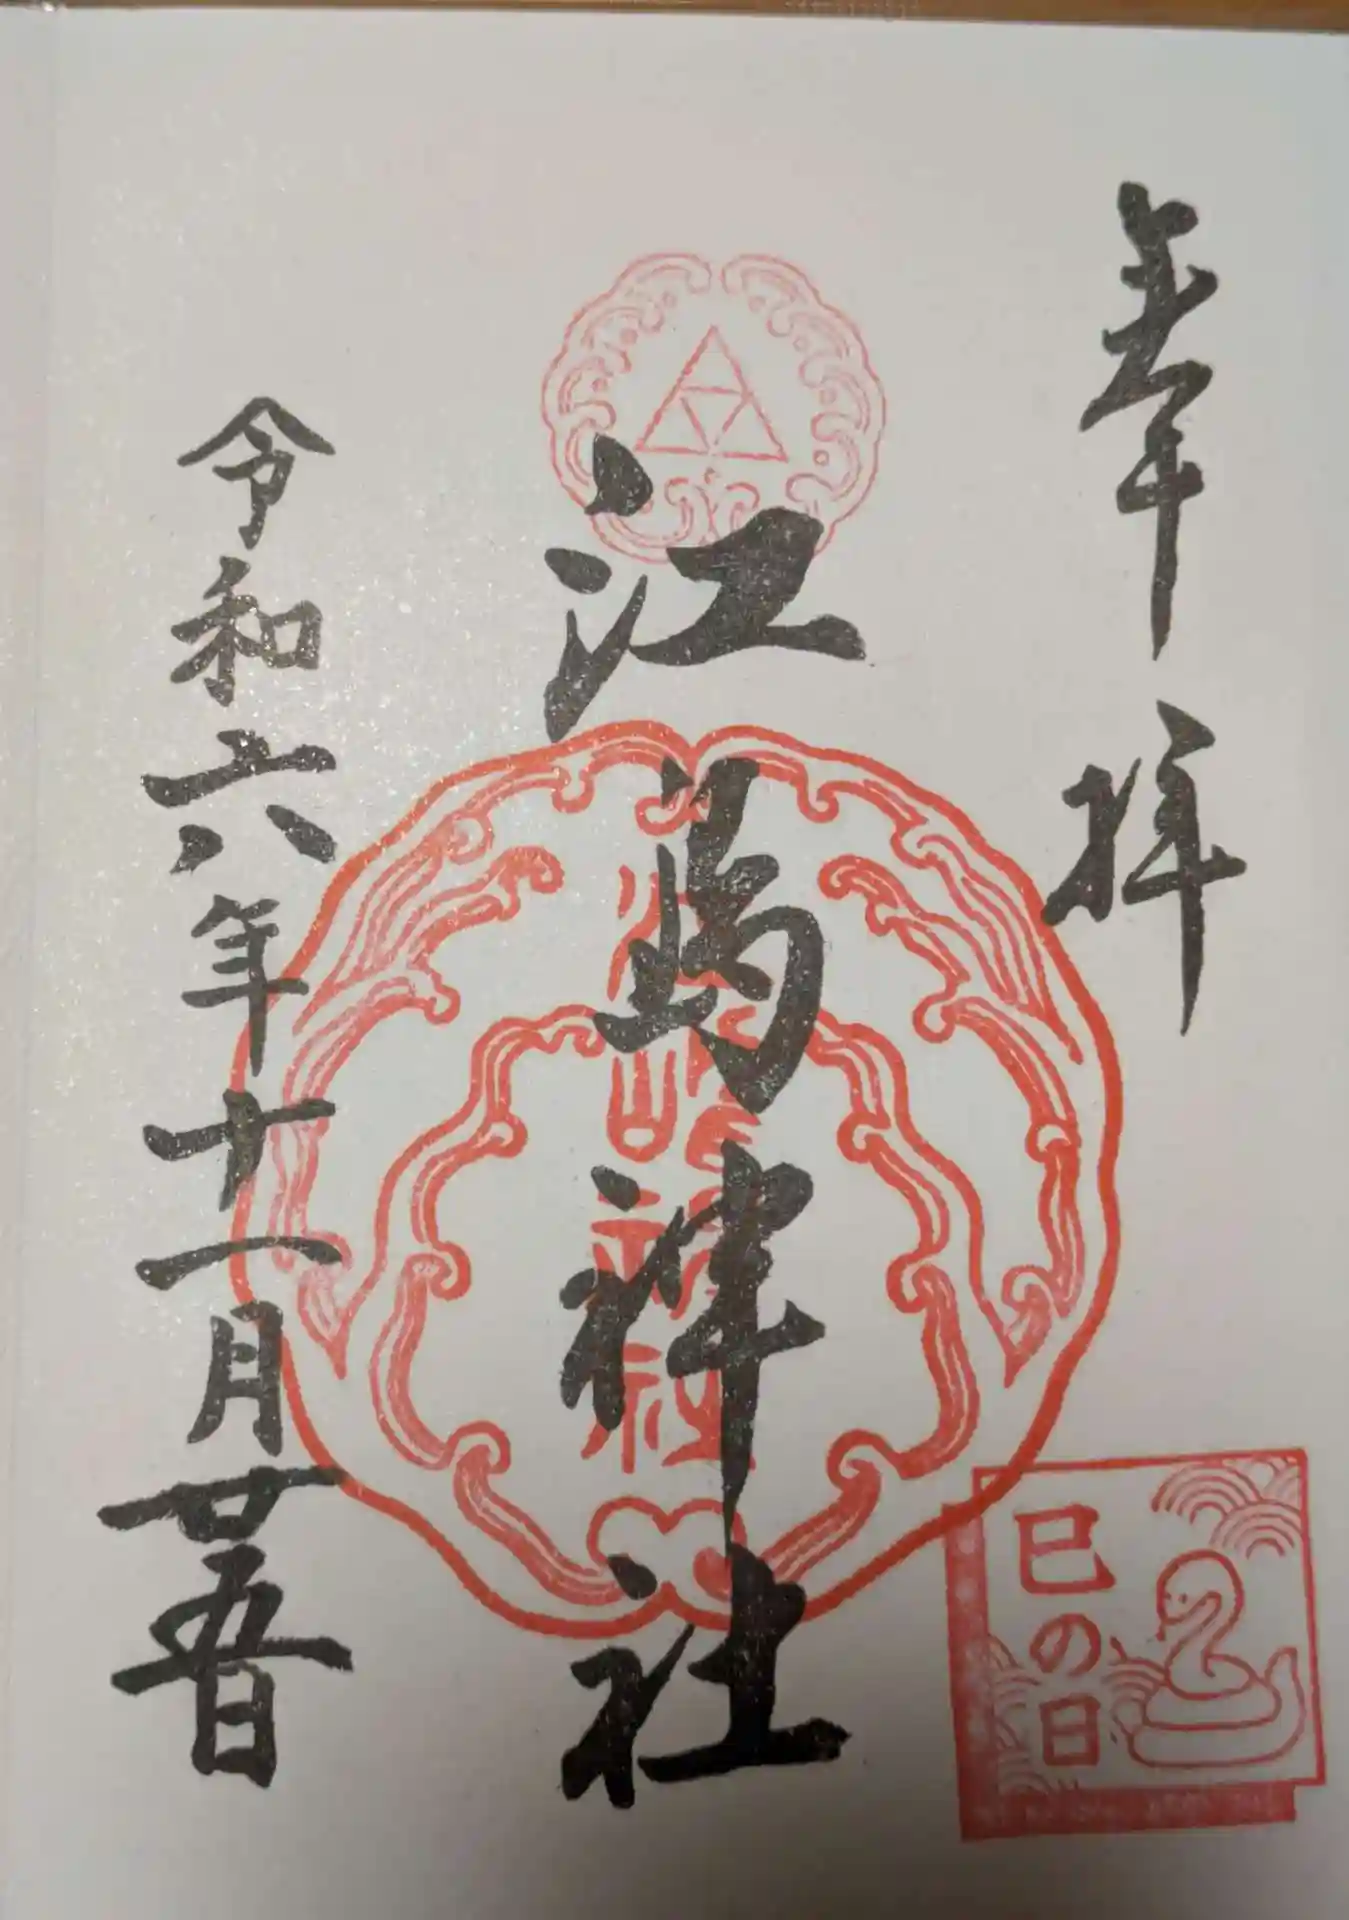 奉拝
江島神社
令和六年十一月廿五日
江島神社
巳の日